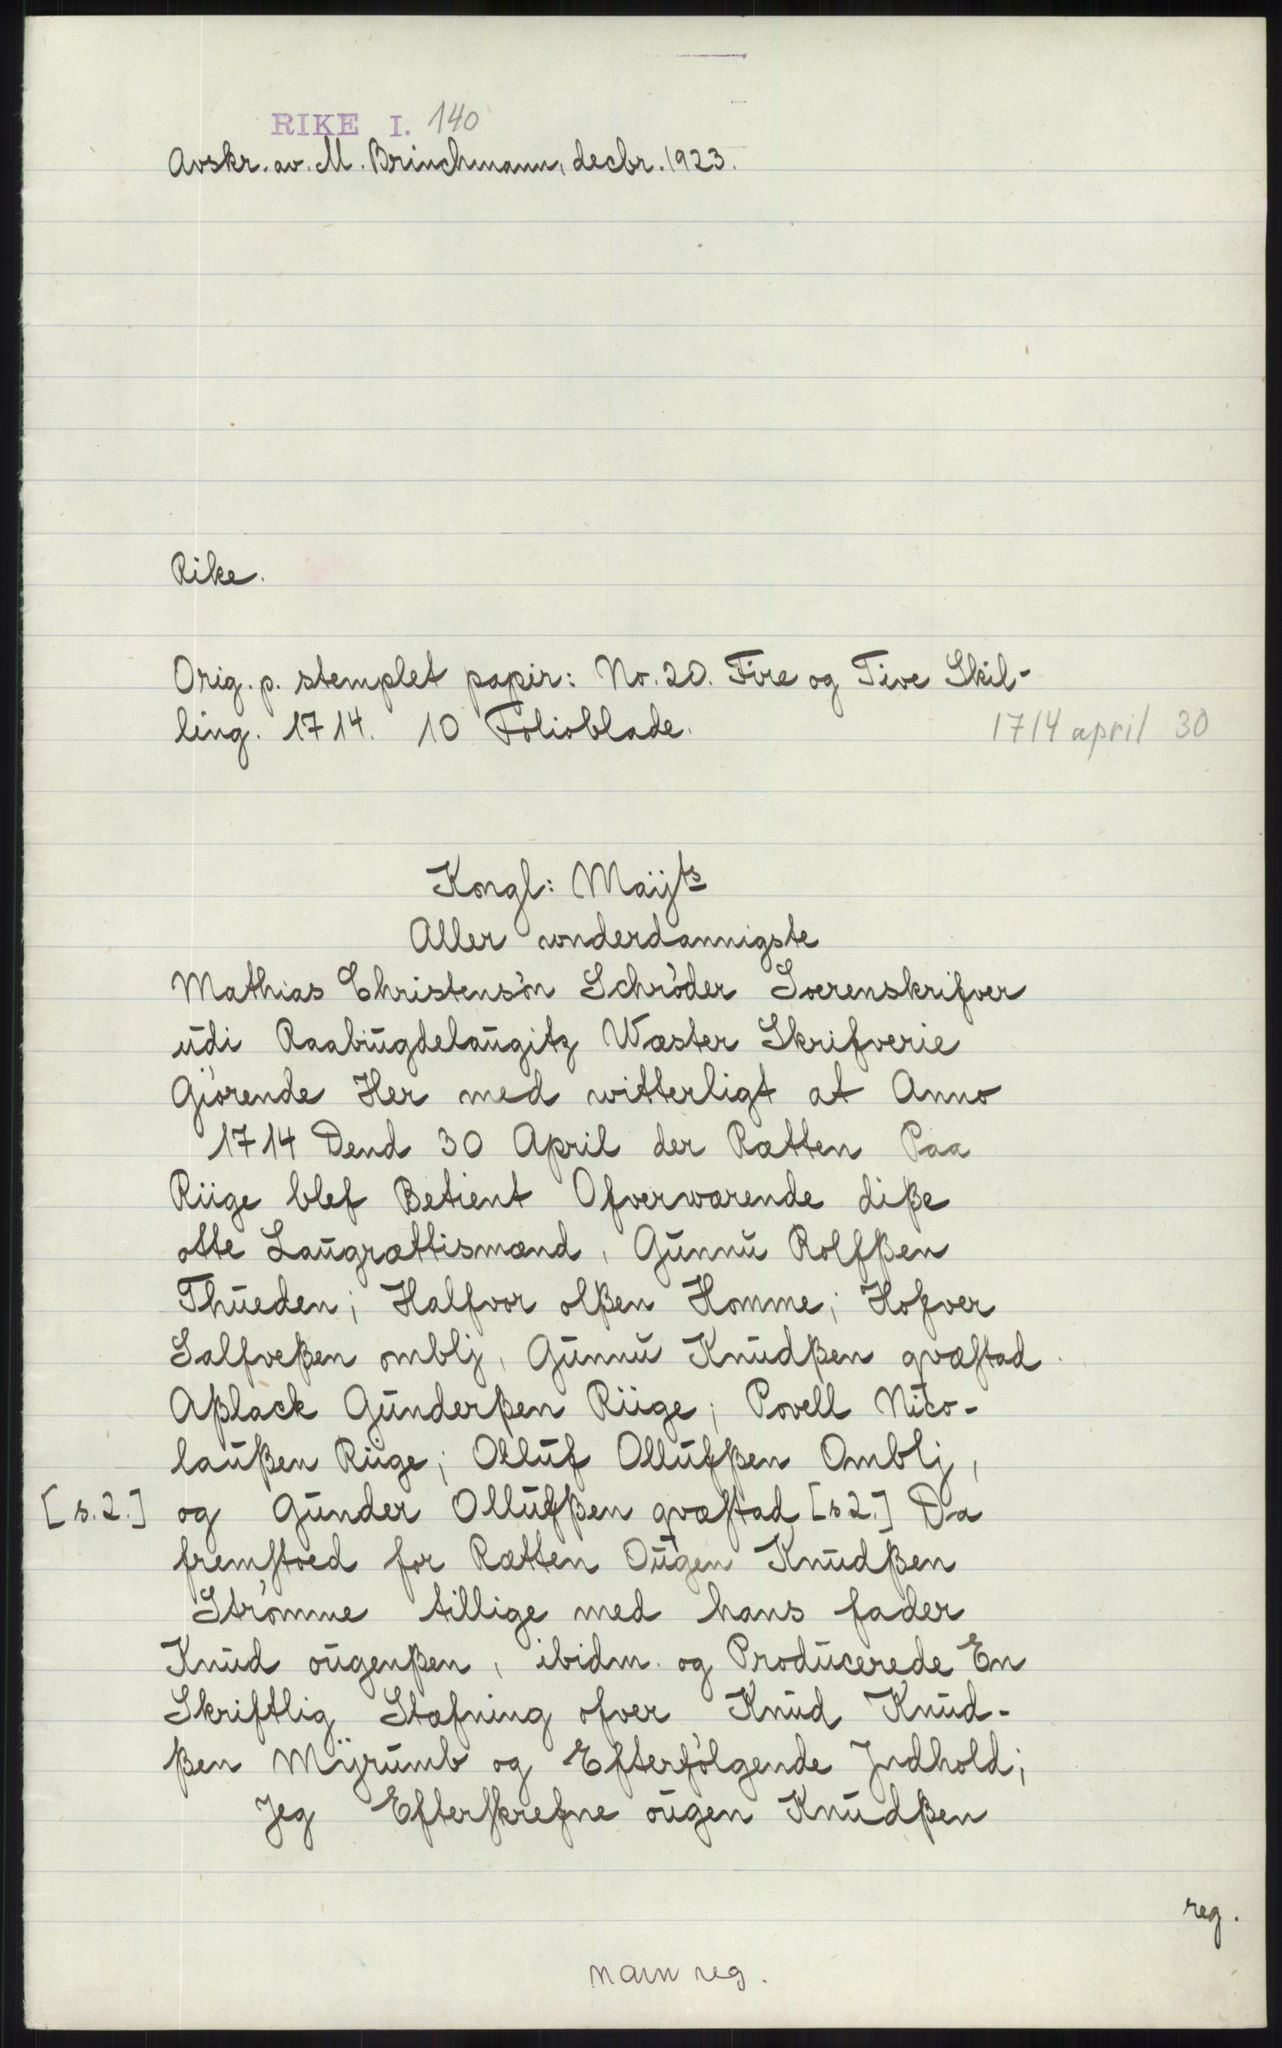 RIKE I. 140
Avskr. av. M. Brinchmann, decbr. 1923.
Rike.
Orig. p. stemplet papir: No. 20. Fire og Tive Skil-
ling. 1714. 10 Folioblade.
1714 april 30
Kongl: Maijts
Aller wnderdannigste
Mathias Christensön Schröder Soerenskrifver
udi Raabūgdelaūgitz Wæster Skrifverie
Giörende Her med witterligt at Anno
1714 Dend 30 April der Rætten Paa
Riige blef Betient Ofverwærende diße
otte Laūgrættismænd, Gūnnū Rolfßen
Thūeden; Halfvor olßen Homme; Hofver
Salfveßen omblj, Gūnnū Knūdßen qvæstad
Aßlack Gūnderßen Riige; Povell Nico-
laūßen Riige; Olluf Ollūfßen Omblj,
[s. 2.] og Gūnder Ollūfßen qvæstad [s 2.] Da
fremstoed for Rætten Oūgen Knūdßen
Strömme tillige med hans fader
Knūd oūgenßen, ibidm. og Prodūcerede En
Skriftlig Stæfning ofver Knūd Knūd-
ßen Mÿrūmb og Efterfölgende Jndhold;
Jeg Efterskrefne oūgen Knūdßen
reg.
navn reg.